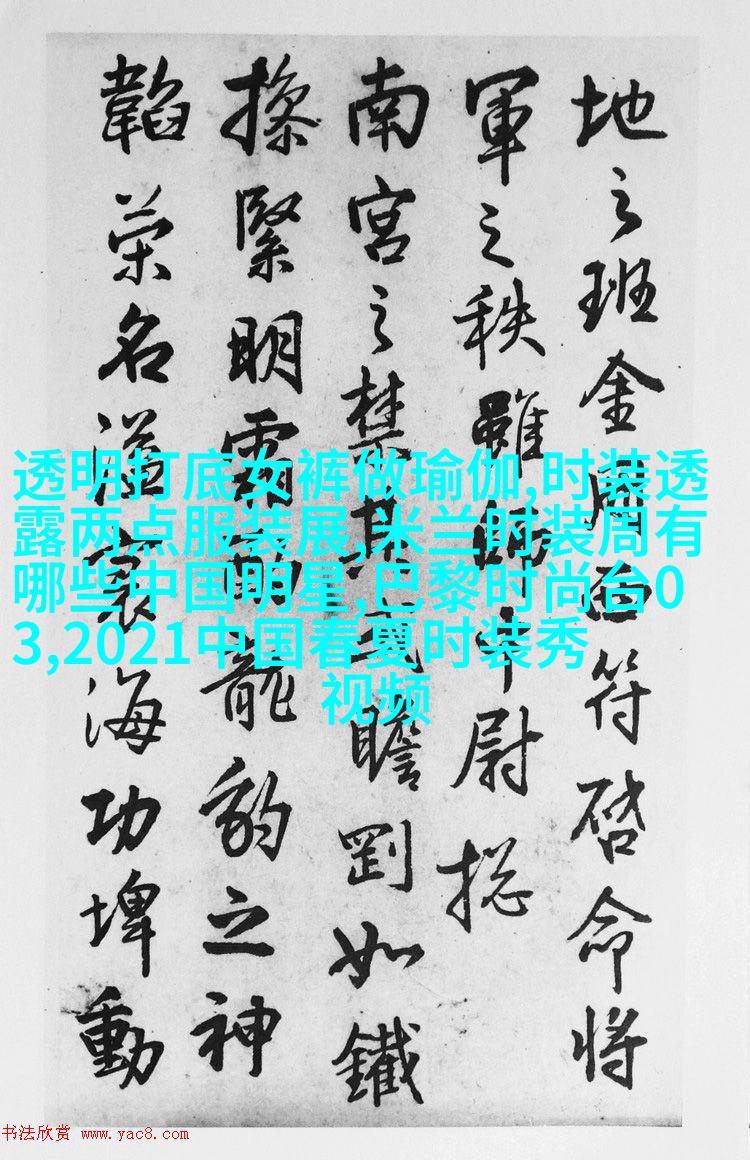 地之班金西符啓命将
軍之秩雖中尉揔
南宮之禁其瞻罰如鐵
操緊明霜龍豹之神
韜榮名溢寰海功埤動
透明打底女裤做瑜伽,时装透
露两点服装展,米兰时装周有
哪些中国明星,巴黎时尚台0
3,2021中国春夏时装秀
视频
书法欣赏 www.yac8.com